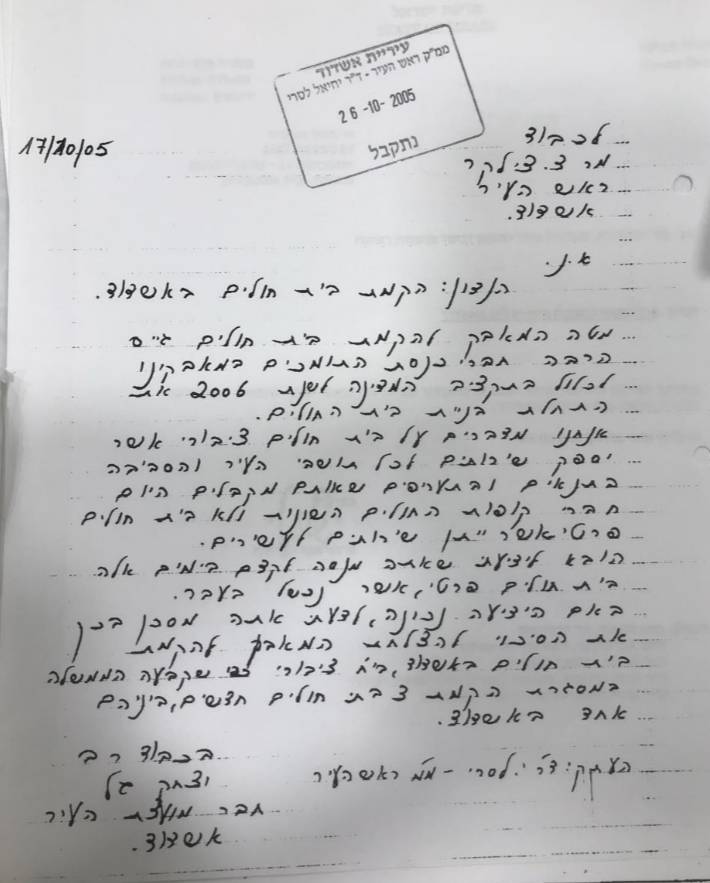 עיריית אשדוד
ממ"ק ראש העיר - ד"ר יחיאל לסרי
26 -10- 2005
נתקבל
17/10/05
לכבוד
מר צ. צילקר
ראש העיר
אשדוד.
א.נ.
הנדון: הקמת בית חולים באשדוד.
מטה המאבק להקמת בית חולים גייס
הרבה חברי כנסת התומכים במאבקינו
לכלול בתקציב המדינה לשנת 2006 את
התחלת בניית בית החולים.
אנחנו מדברים על בית חולים ציבורי אשר
יספק שירותים לכל תושבי העיר והסביבה
בתנאים ובתעריפים שאותם מקבלים היום
חברי קופות החולים השונות ולא בית חולים
פרטי אשר ייתן שירותים לעשירים.
הובא לידיעתי שאתה מנסה לקדם בימים אלה
בית חולים פרטי, אשר נכשל בעבר.
באם הידיעה נכונה, לדעתי אתה מסכן בכך
את הסיכוי להצלחת המאבק להקמת
בית חולים באשדוד, בי"ח ציבורי כפי שקבעה הממשלה
במסגרת הקמת 3 בתי חולים חדשים, ביניהם
אחד באשדוד.
בכבוד רב
יצחק גל
חבר מועצת העיר
אשדוד.
העתק: ד"ר י. לסרי - מ"מ ראש העיר